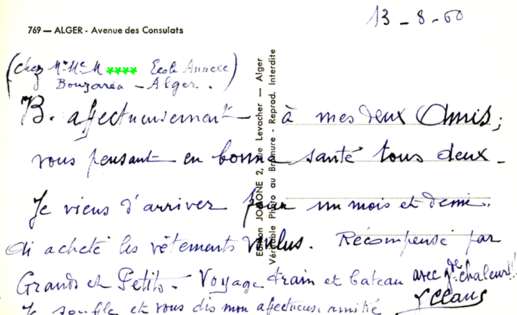 13-8-60
769 — ALGER - Avenue des Consulats
(chez Mr Me M **** Ecole Annexe)
Bouzarea - Alger.
B. afectueusement - à mes deux Amis;
vous pensant en bonne santé tous deux -
Je viens d'arriver pour un mois et demi.
Ai acheté les vêtements voulus. Récompensé par
Grands et Petits - Voyage train et bateau avec gde chaleur!!
Je souffle et vous dis mon afectueuse amitié
Edition JOMONE 2, Levacher — Alger
Véritable Photo au Bromure - Reprod. Interdite